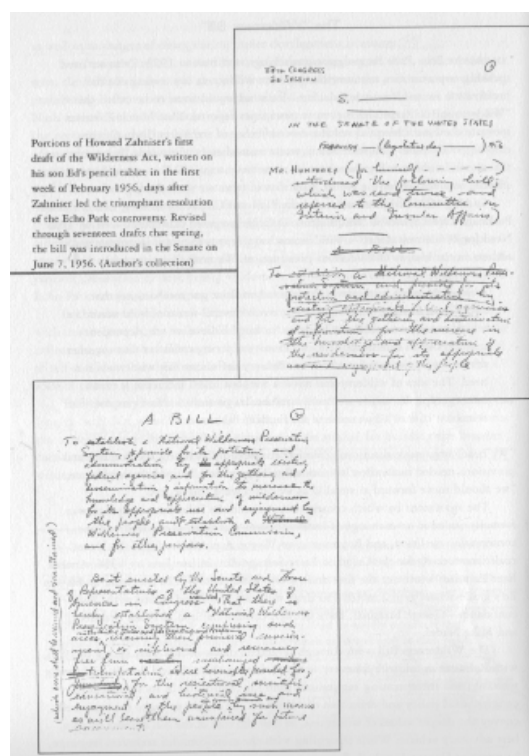 Portions of Howard Zahniser's first
draft of the Wilderness Act, written on
his son Ed's pencil tablet in the first
week of February 1956, days after
Zahniser led the triumphant resolution
of the Echo Park controversy. Revised
through seventeen drafts that spring,
the bill was introduced in the Senate on
June 7, 1956. (Author's collection)
CONGRESS
2D SESSION
S.
IN THE SENATE OF THE UNITED STATES
FEBRUARY (legislative day
MR. HUMPHREY (for himself
introduced the following bill;
which was read twice and
referred to the Committee on
Interior and Insular Affairs)
To establish a National Wilderness
protection and administration by
of information for the increase in
the knowledge and appreciation of
the wilderness for its appropriate
use and enjoyment by the people
A BILL
To establish a National Wilderness Preservation
System, to provide for its protection and
administration by appropriate existing
federal agencies and for the gathering and
dissemination of information to increase the
knowledge and appreciation of wilderness
for its appropriate use and enjoyment by
the people, and to establish a National
Wilderness Preservation Commission,
and for other purposes.
Be it enacted by the Senate and House
of Representatives of the United States of
America in Congress That there is
hereby established a National Wilderness
Preservation System comprising such
areas retaining their primeval
environment or influence and
free from mechanized
transportation
for the recreational, scientific,
educational, and historical use and
enjoyment of the people in such manner
as will leave them unimpaired for future